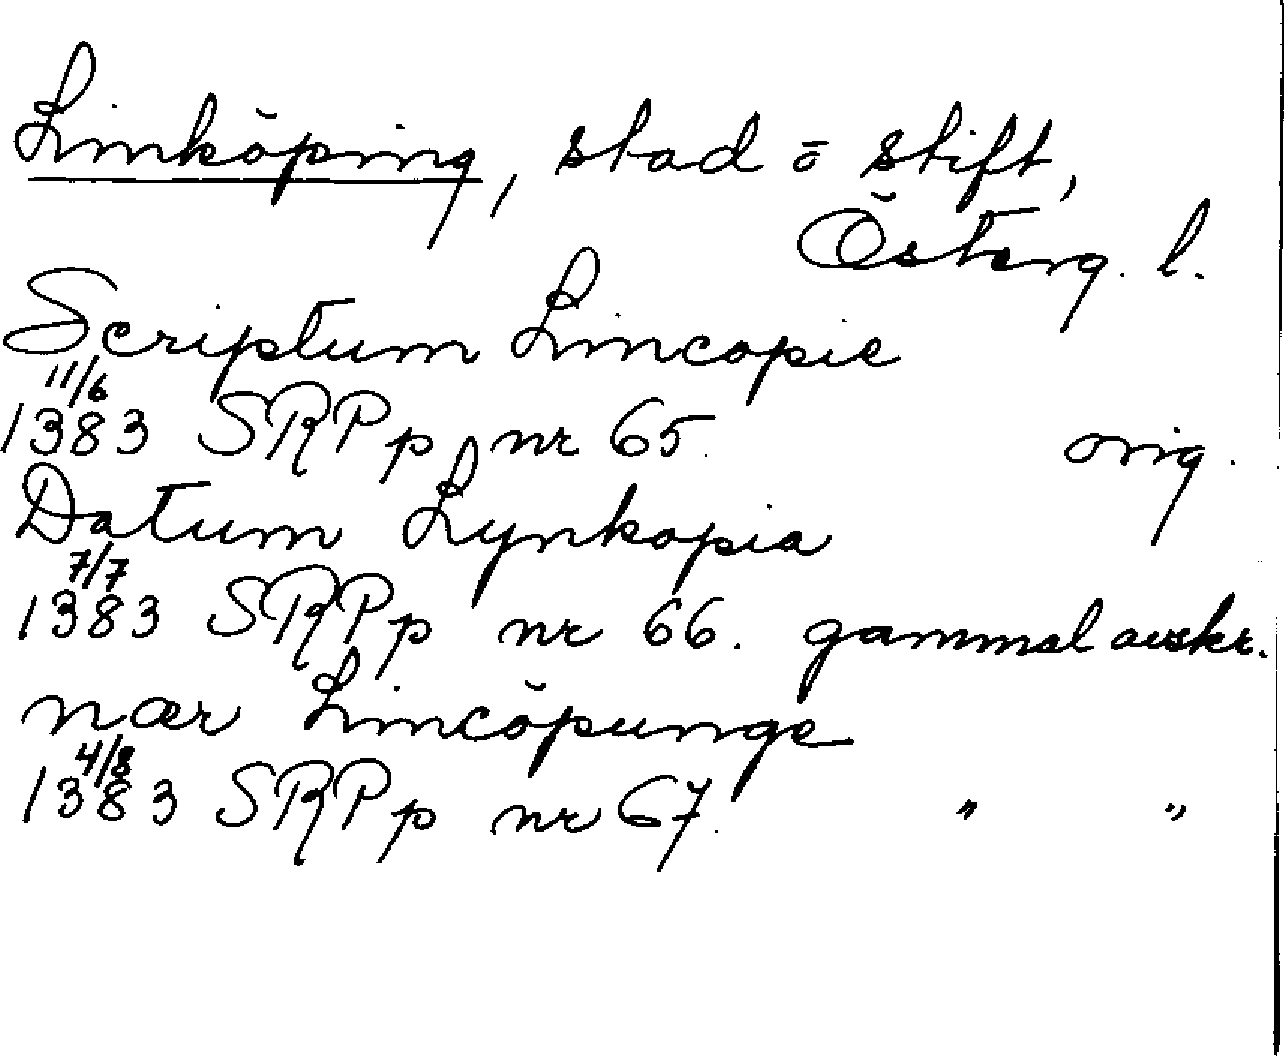 Linköping, stad o stift,
Österg. l.
Scriptum Lincopie
11/6
1383 SRPp nr 65. orig.
Datum Lynkopia
7/7
1383 SRPp nr 66. gammal avskr.
nær Lincöpunge
4/8
1383 SRPp nr 67. " "